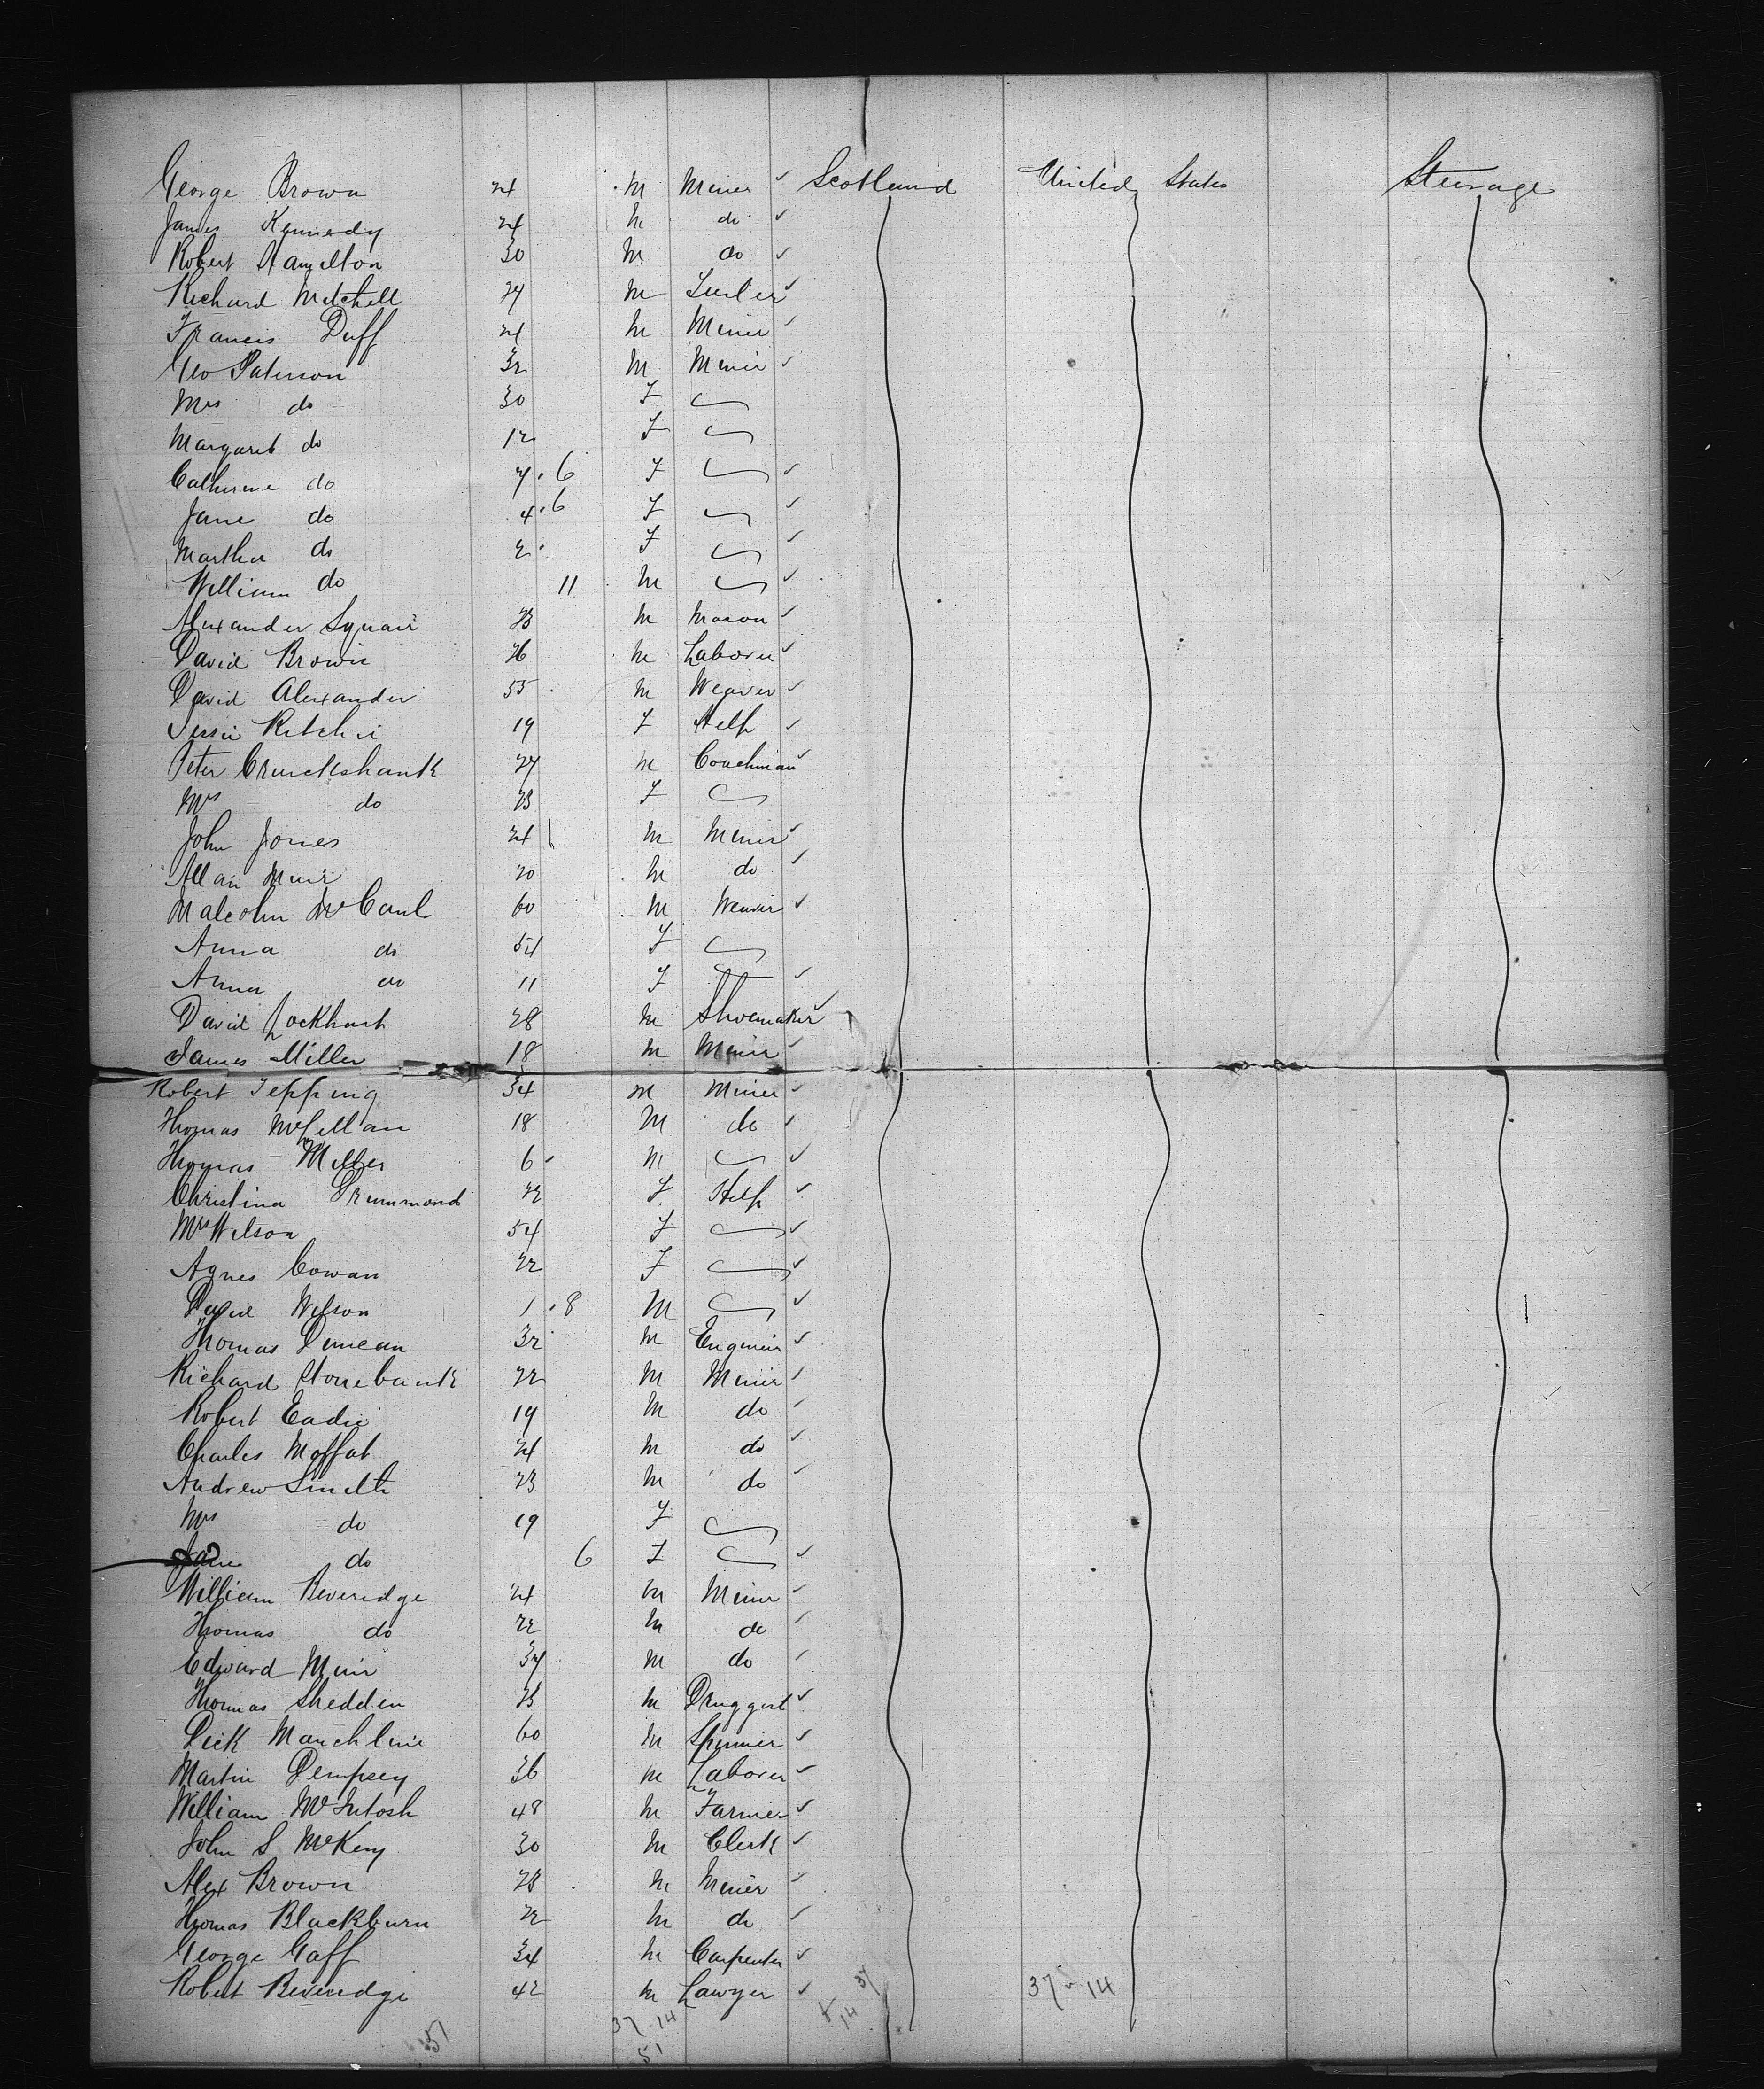 George Brown 24 M Miner ✓ Scotland United States Steerage
James Kennedy 24 M do ✓
Robert Hamilton 30 M do ✓
Richard Mitchell 27 M ✓
Francis Duff 24 M Miner ✓
Geo Paterson 32 M Miner ✓
Mrs do 30 F
Margaret do 12 F
Catherine do 7 . 6 F ✓
Jane do 4 . 6 F ✓
Martha do 2 F ✓
William do 11 M ✓
Alexander Squair 23 M Mason ✓
David Brown 26 M Laborer ✓
David Alexander 55 M Weaver ✓
Jessie Ritchie 19 F Help ✓
Peter Cruickshank 27 M Coachman ✓
Mrs do 23 F
John Jones 24 M Miner ✓
Allan Muir 20 M do ✓
Malcolm McCaul 60 M Weaver ✓
Anna do 54 F
Anna do 11 F ✓
David Lockhart 28 M Shoemaker ✓
James Miller 18 M Miner ✓
Robert Tepping 34 M Miner ✓
Thomas McLellan 18 M do ✓
Thomas Miller 6 M ✓
Christina Drummond 22 F Help ✓
Mrs Wilson 54 F ✓
Agnes Cowan 22 F ✓
David Wilson 1 . 8 M ✓
Thomas Duncan 32 M Engineer ✓
Richard Stonebank 22 M Miner ✓
Robert Eadie 19 M do ✓
Charles Moffat 24 M do ✓
Andrew Smith 23 M do ✓
Mrs do 19 F
Jane do 6 F ✓
William Beveridge 24 M Miner ✓
Thomas do 22 M do ✓
Edward Muir 37 M do ✓
Thomas Shedden 23 M Druggist ✓
Dick Mauchline 60 M Spinner ✓
Martin Dempsey 36 M Laborer ✓
William McIntosh 48 M Farmer ✓
John S McKeny 30 M Clerk ✓
Alex Brown 28 M Miner ✓
Thomas Blackburn 22 M do ✓
George Gaff 34 M Carpenter ✓
Robert Beveridge 42 M Lawyer ✓ 37 37 - 14
37 14 14
51 51